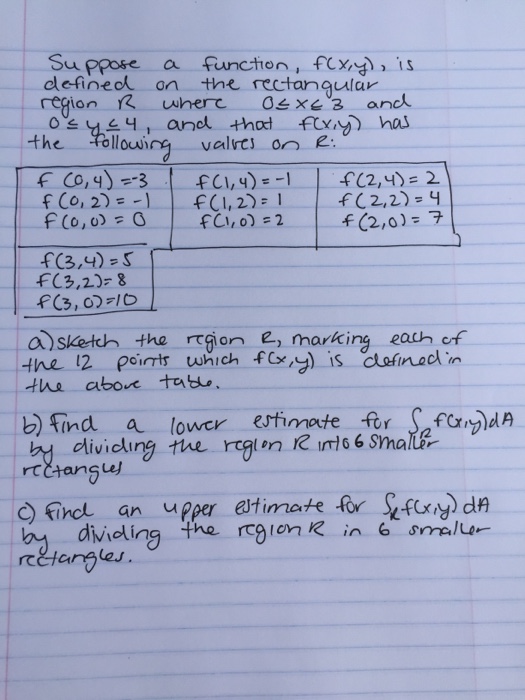 Suppose a function, f(x,y), is
defined on the rectangular
region R where 0≤x≤3 and
0≤y≤4, and that f(x,y) has
the following values on R:
f(0,4)=-3 f(1,4)=-1 f(2,4)=2
f(0,2)=-1 f(1,2)=1 f(2,2)=4
f(0,0)=0 f(1,0)=2 f(2,0)=7
f(3,4)=5
f(3,2)=8
f(3,0)=10
a) sketch the region R, marking each of
the 12 points which f(x,y) is defined in
the above table.
b) find a lower estimate for ∫_R f(x,y)dA
by dividing the region R into 6 smaller
rectangles
c) find an upper estimate for ∫_R f(x,y) dA
by dividing the region R in 6 smaller
rectangles.